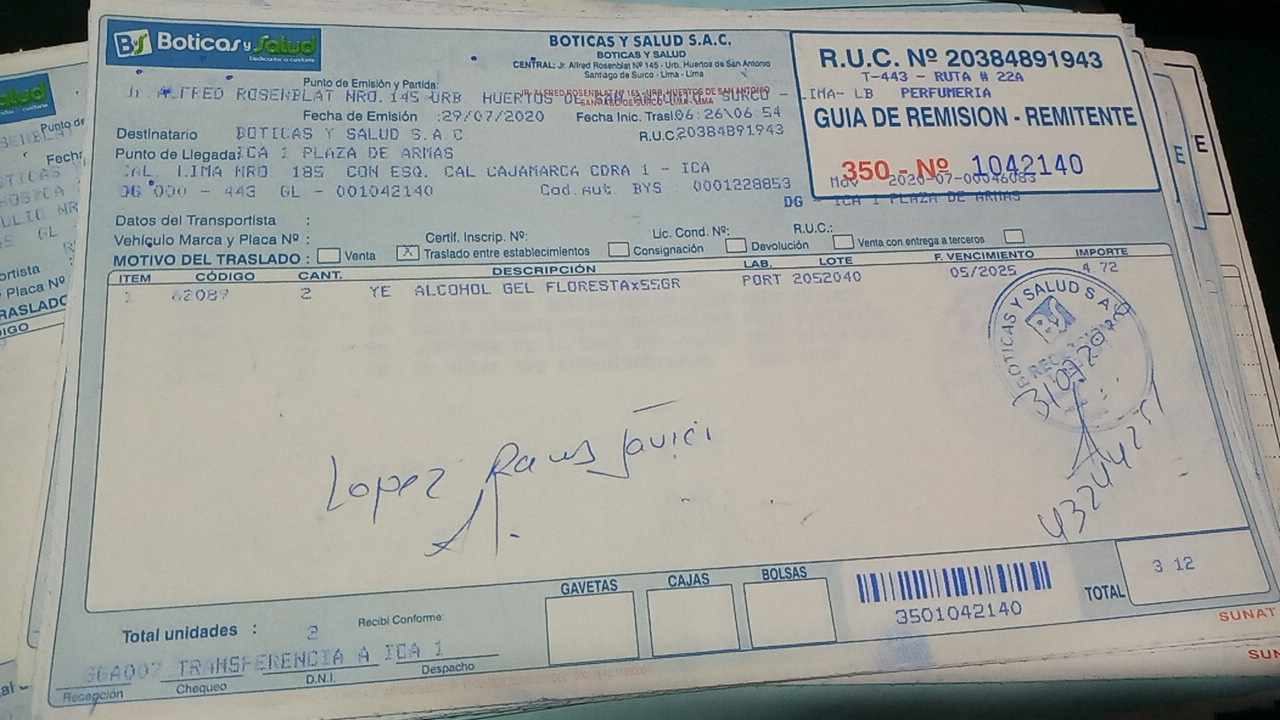 BS Boticas y Salud
Dedicados a cuidarte
BOTICAS Y SALUD S.A.C.
BOTICAS Y SALUD
CENTRAL: Jr. Alfred Rosenblat Nº 145 - Urb. Huertos de San Antonio
Santiago de Surco - Lima - Lima
R.U.C. Nº 20384891943
T-443 - RUTA # 22A
PERFUMERIA
GUIA DE REMISION - REMITENTE
350 - Nº 1042140
Mov 2020-07-00046083
DG ICA 1 PLAZA DE ARMAS
Punto de Emisión y Partida:
Jr ALFRED ROSENBLAT NRO. 145 URB HUERTOS DE SAN ANTONIO SURCO - LIMA- LB
JR. ALFRED ROSENBLAT 145 - URB. HUERTOS DE SAN ANTONIO
SANTIAGO DE SURCO - LIMA - LIMA
Fecha de Emisión :29/07/2020 Fecha Inic. Trasl.: 06:26\06:54
Destinatario BOTICAS Y SALUD S.A.C R.U.C. 20384891943
Punto de Llegada: ICA 1 PLAZA DE ARMAS
CAL. LIMA NRO 185 CON ESQ. CAL CAJAMARCA CDRA 1 - ICA
DG 000 - 443 GL - 001042140 Cod.Aut. BYS : 0001228853
Datos del Transportista :
Vehículo Marca y Placa Nº : Certif. Inscrip. Nº: Lic. Cond. Nº: R.U.C.:
MOTIVO DEL TRASLADO : Venta X Traslado entre establecimientos Consignación Devolución Venta con entrega a terceros
ITEM CÓDIGO CANT. DESCRIPCIÓN LAB. LOTE F. VENCIMIENTO IMPORTE
1 62089 2 YE ALCOHOL GEL FLORESTAx55GR PORT 2052040 05/2025 4.72
BOTICAS Y SALUD S A C
BS
31 07 2020
Lopez Javier
43244251
GAVETAS CAJAS BOLSAS
3501042140
TOTAL 3 12
Total unidades : 2 Recibí Conforme:
TRANSFERENCIA A ICA 1
Recepción Chequeo D.N.I. Despacho
SUNAT